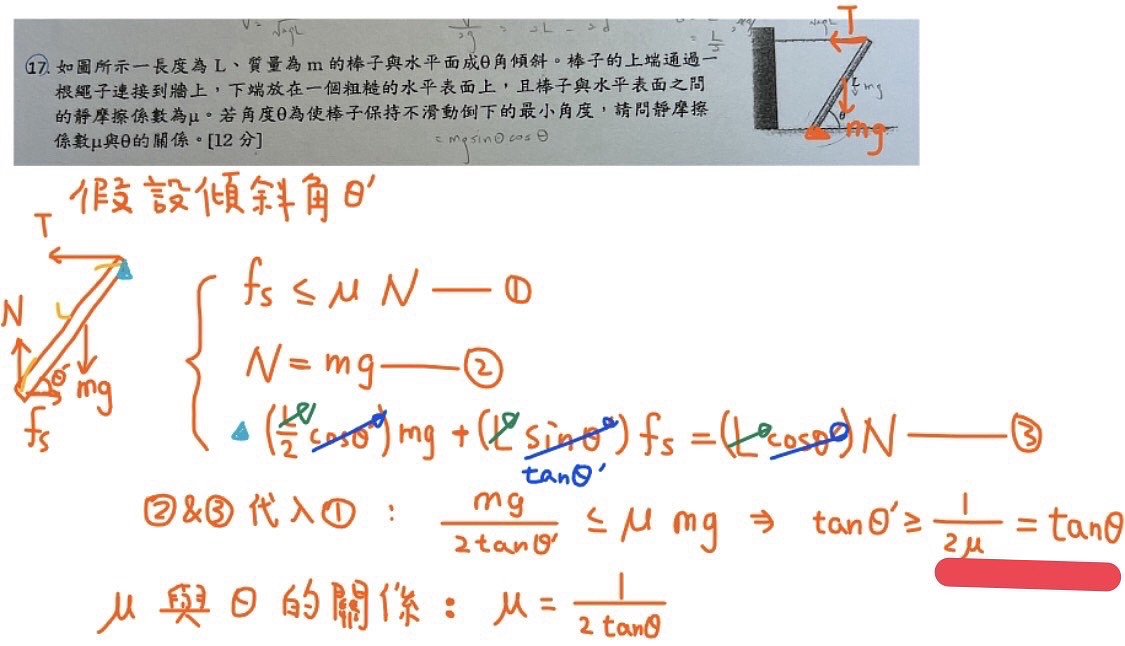 T
17. 如圖所示一長度為 L、質量為 m 的棒子與水平面成θ角傾斜。棒子的上端通過一
根繩子連接到牆上，下端放在一個粗糙的水平表面上，且棒子與水平表面之間
的靜摩擦係數為μ。若角度θ為使棒子保持不滑動倒下的最小角度，請問靜摩擦
係數μ與θ的關係。[12 分]
= mg sinθ cosθ
θ
mg
假設傾斜角θ'
T
L
N
θ'
mg
fs
fs ≤ μ N — ①
N = mg — ②
(L/2 cosθ') mg + (L sinθ') fs = (L cosθ') N — ③
tanθ'
②&③代入①： mg/2tanθ' ≤ μ mg ⇒ tanθ' ≥ 1/2μ = tanθ
μ 與 θ 的關係： μ = 1/2tanθ